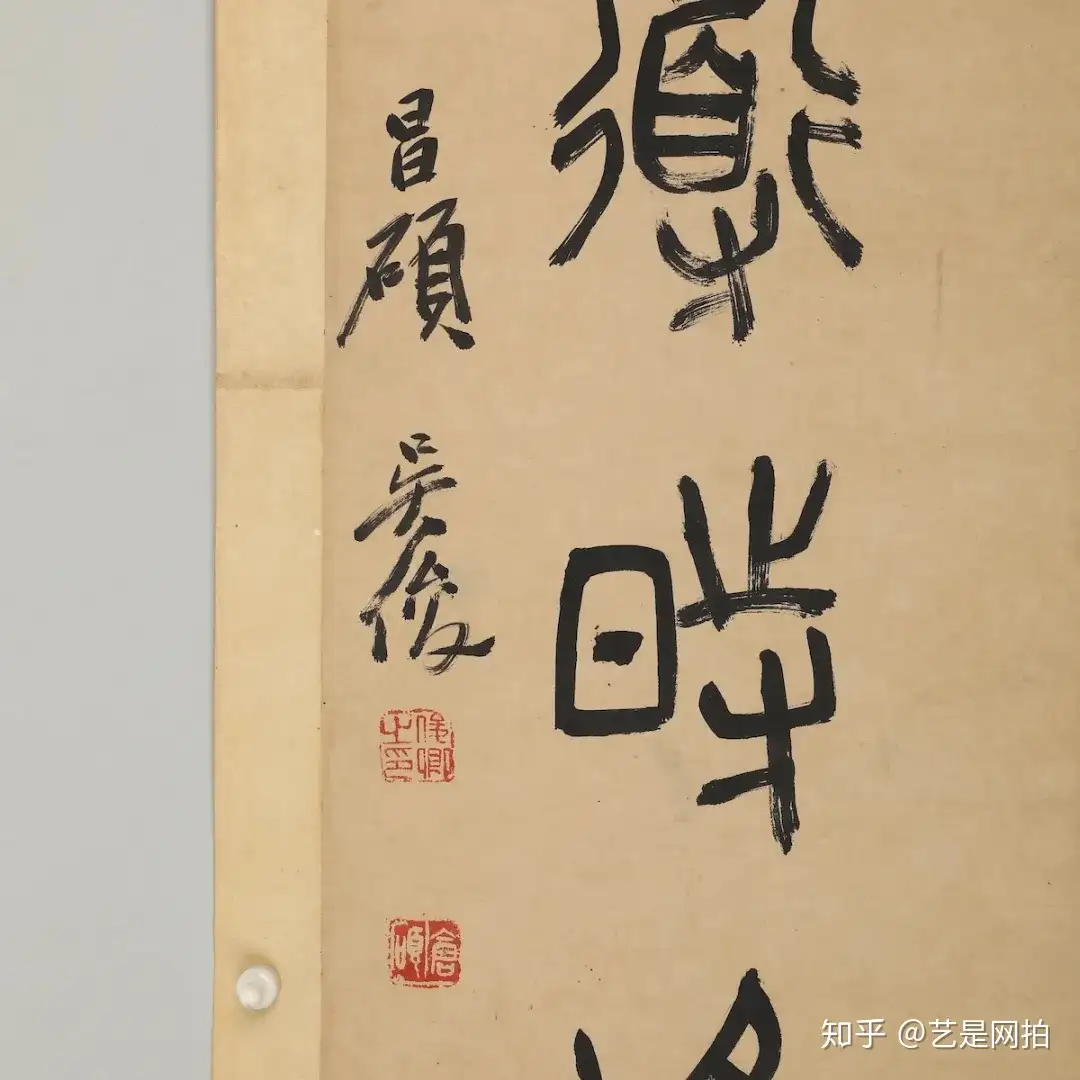 時
昌碩 吳俊
俊卿之印
倉碩
知乎 @艺是网拍